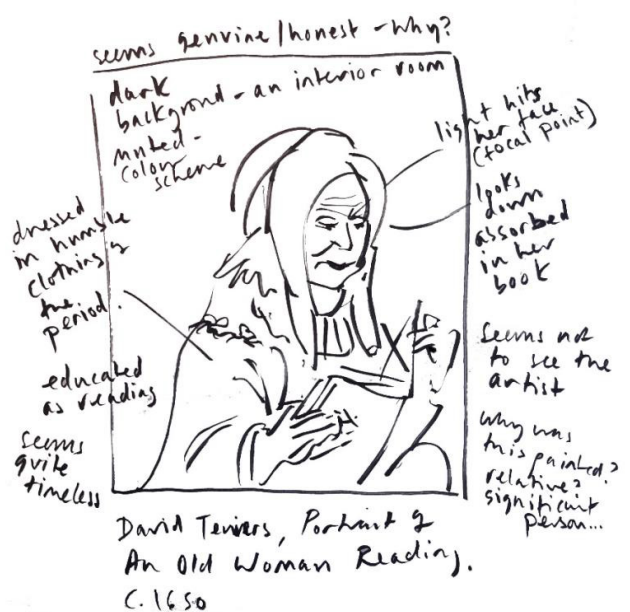 seems genuine/honest - why?
dark
background - an interior room
muted -
colour
scheme
light hits
her face
(focal point)
looks
down
assorbed
in her
book
dressed
in humble
clothing of
the
period.
educated
as reading
seems
quite
timeless
seems not
to see the
artist
why was
this painted?
relative?
significant
person...
David Teniers, Portrait of
An Old Woman Reading.
C. 1650